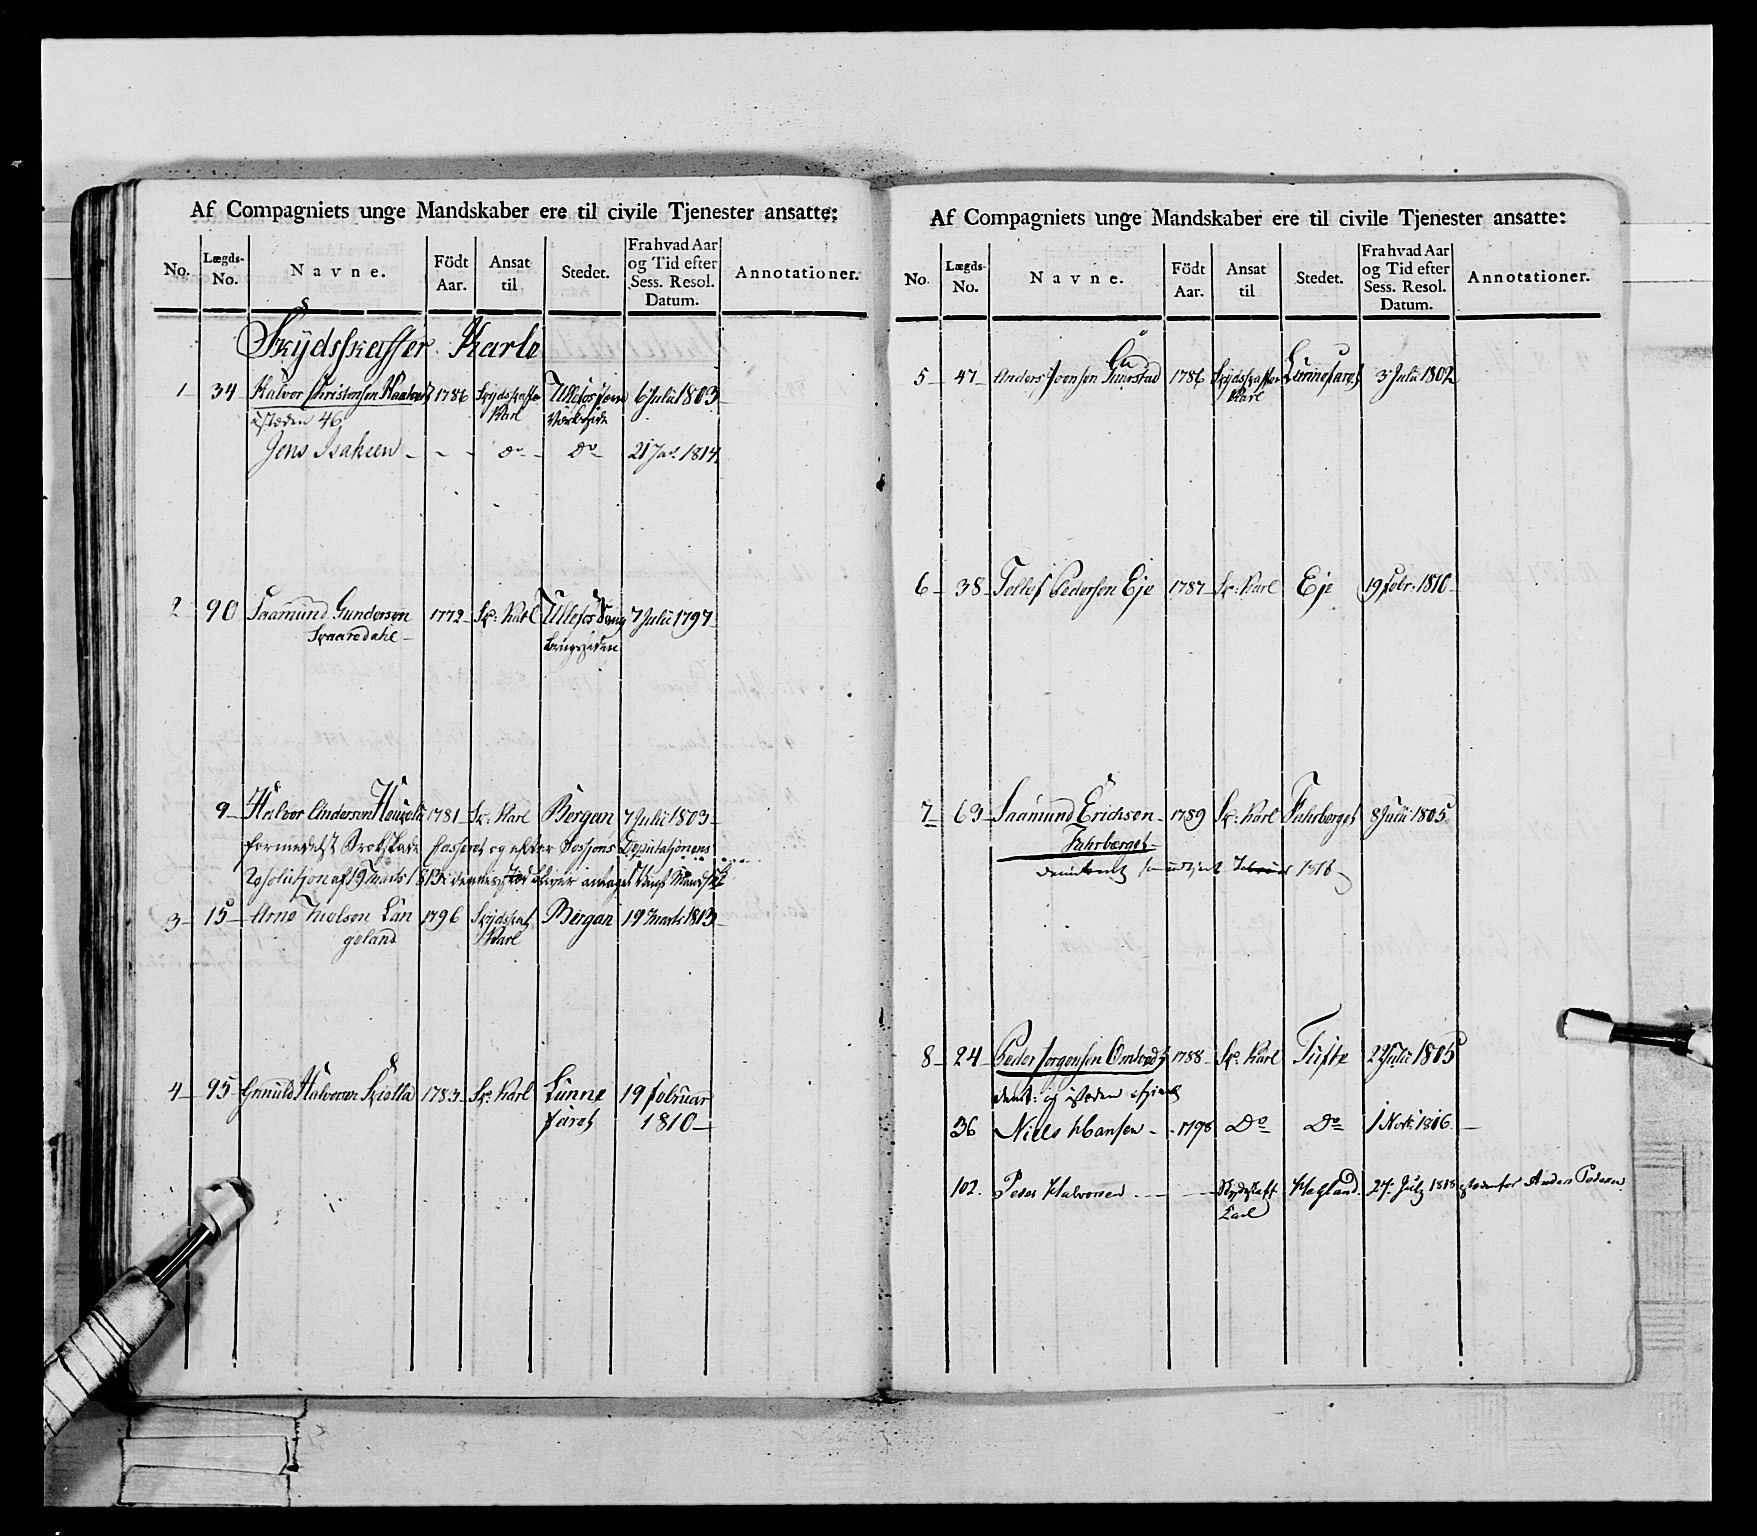 Af Compagniets unge Mandskaber ere til civile Tjenester ansatte:
No. Lægds-No. Navne. Födt Aar. Ansat til Stedet. Fra hvad Aar og Tid efter Sess. Resol. Datum. Annotationer.
Skydsskaffer Karle
1 34 Halvor Christensen 1786 Skydsskaffer Karl Ullefos 6 Julii 1803
isteden 46
Jens Isaksen - - do do 21 Jan 1814
2 90 Saamund Gunderson Skaaredahl 1772 Sk: Karl Ullefos 7 Julii 1797
9 Halvor Anderson 1781 Sk: Karl Bergan 7 Julii 1803
formedelst og efter Sessions Deputationens
Resolution af 19 Marts 1813
3 15 Arne Langeland 1796 Skydsskaf Karl Bergan 19 Marts 1813
4 95 Gunuld Halvorsen 1783 Sk: Karl Lunne 19 Februar 1810
Af Compagniets unge Mandskaber ere til civile Tjenester ansatte:
No. Lægds-No. Navne. Födt Aar. Ansat til Stedet. Fra hvad Aar og Tid efter Sess. Resol. Datum. Annotationer.
5 47 Anders Joensen 1786 Skydsskaffer Karl 3 Julii 1802
6 38 Tollef Pederson Eje 1787 Sk: Karl Eje 19 Febr: 1810
7 63 Saamund Erichsen Fahrberget 1789 Sk: Karl Fahrberget 8 Julii 1805
1816
8 24 Peder Jørgensen 1788 Sk: Karl Tufte 2 Julii 1805
isteden
36 Niels Hansen 1798 Do Do 1816
102. Peder Halvorsen - - Skydsskaff Karl Hegland 24 July 1818 istedenfor Anders Pedersen